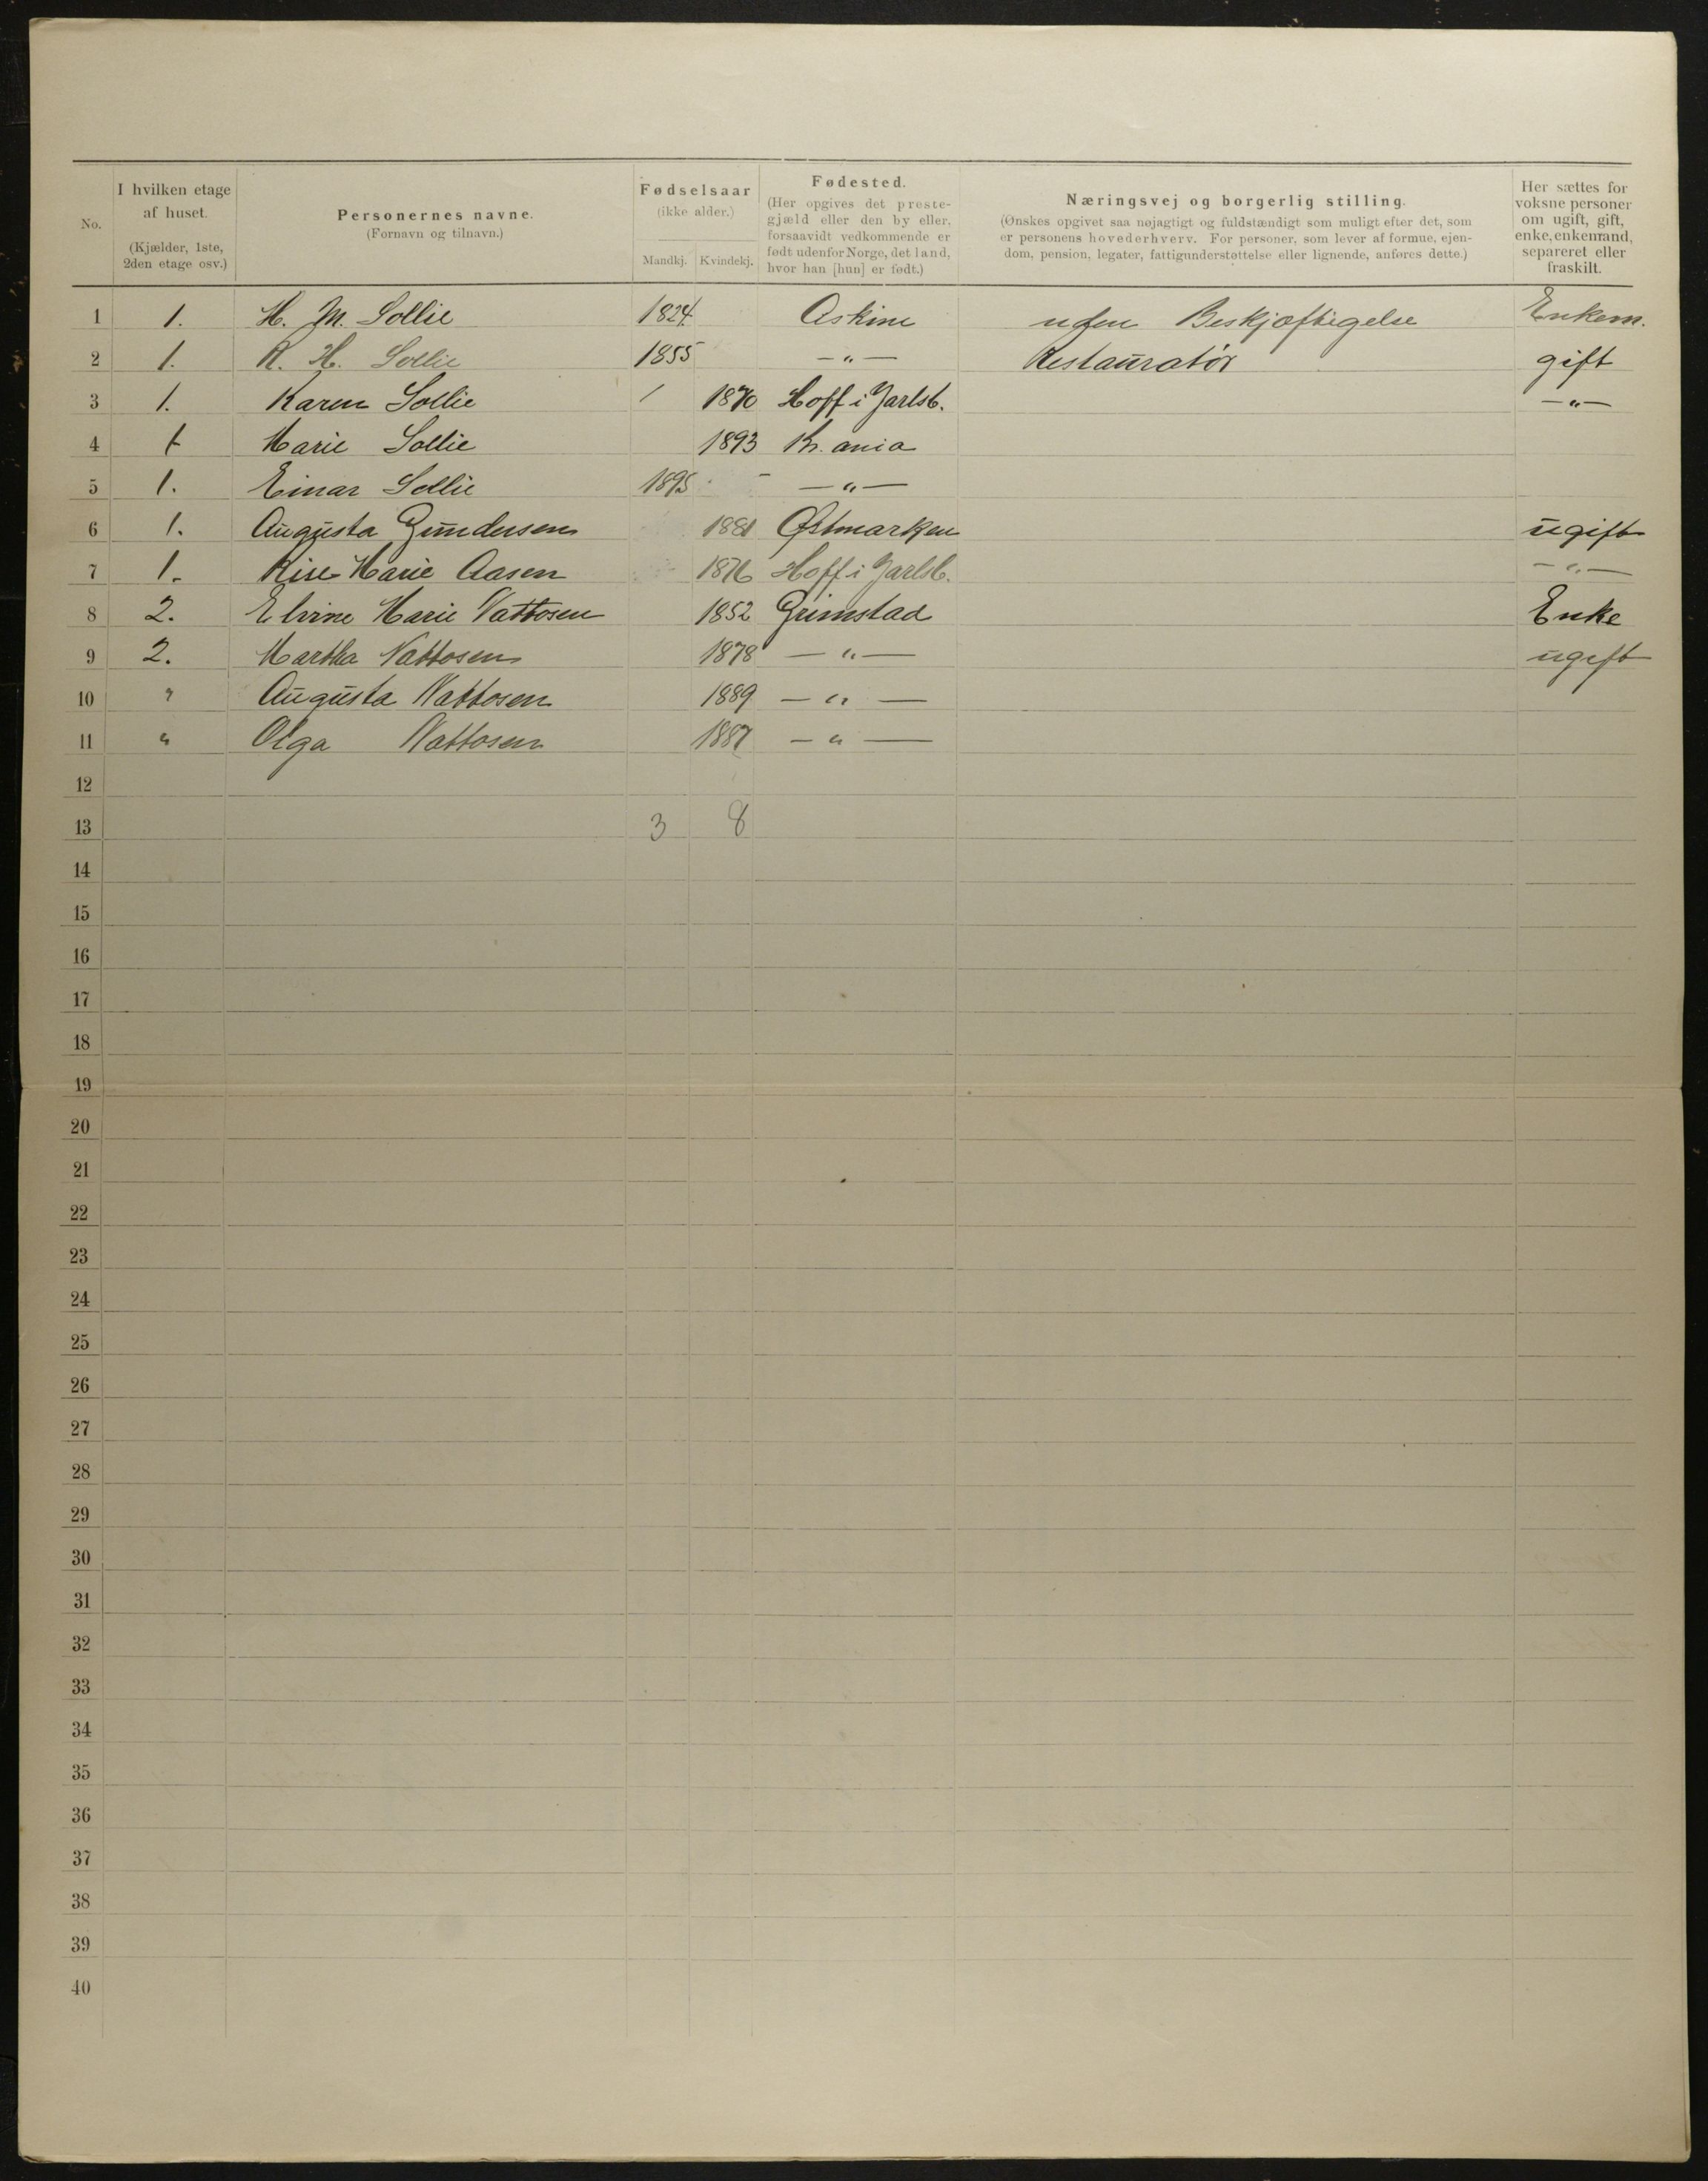 No.
I hvilken etage af huset.
(Kjælder, 1ste, 2den etage osv.)
Personernes navne.
(Fornavn og tilnavn.)
Fødselsaar
(ikke alder.)
Mandkj. Kvindekj.
Fødested.
(Her opgives det preste-
gjæld eller den by eller,
forsaavidt vedkommende er
født udenfor Norge, det land,
hvor han [hun] er født.)
Næringsvej og borgerlig stilling.
(Ønskes opgivet saa nøjagtigt og fuldstændigt som muligt efter det, som
er personens hovederhverv. For personer, som lever af formue, ejen-
dom, pension, legater, fattigunderstøttelse eller lignende, anføres dette.)
Her sættes for
voksne personer
om ugift, gift,
enke, enkemand,
separeret eller
fraskilt.
1 1. H. M. Sollie 1824. Askim uden Beskjæftigelse Enkem.
2 1. R. H. Sollie 1855 —"— Restauratør gift
3 1. Karen Sollie 1870 Hoff i Jarlsb. —"—
4 1 Marie Sollie 1893 Kr.ania
5 1. Einar Sollie 1895 —"—
6 1. Augusta Gundersen 1881 Østmarken ugift
7 1. Marie Aasen 1876 Hoff i Jarlsb. —"—
8 2. Marie Nattosen 1852 Grimstad Enke
9 2. Martha Nattosen 1878 —"— ugift
10 " Augusta Nattosen 1889 —"—
11 " Olga Nattosen 1887 —"—
12
13 3 8
14
15
16
17
18
19
20
21
22
23
24
25
26
27
28
29
30
31
32
33
34
35
36
37
38
39
40